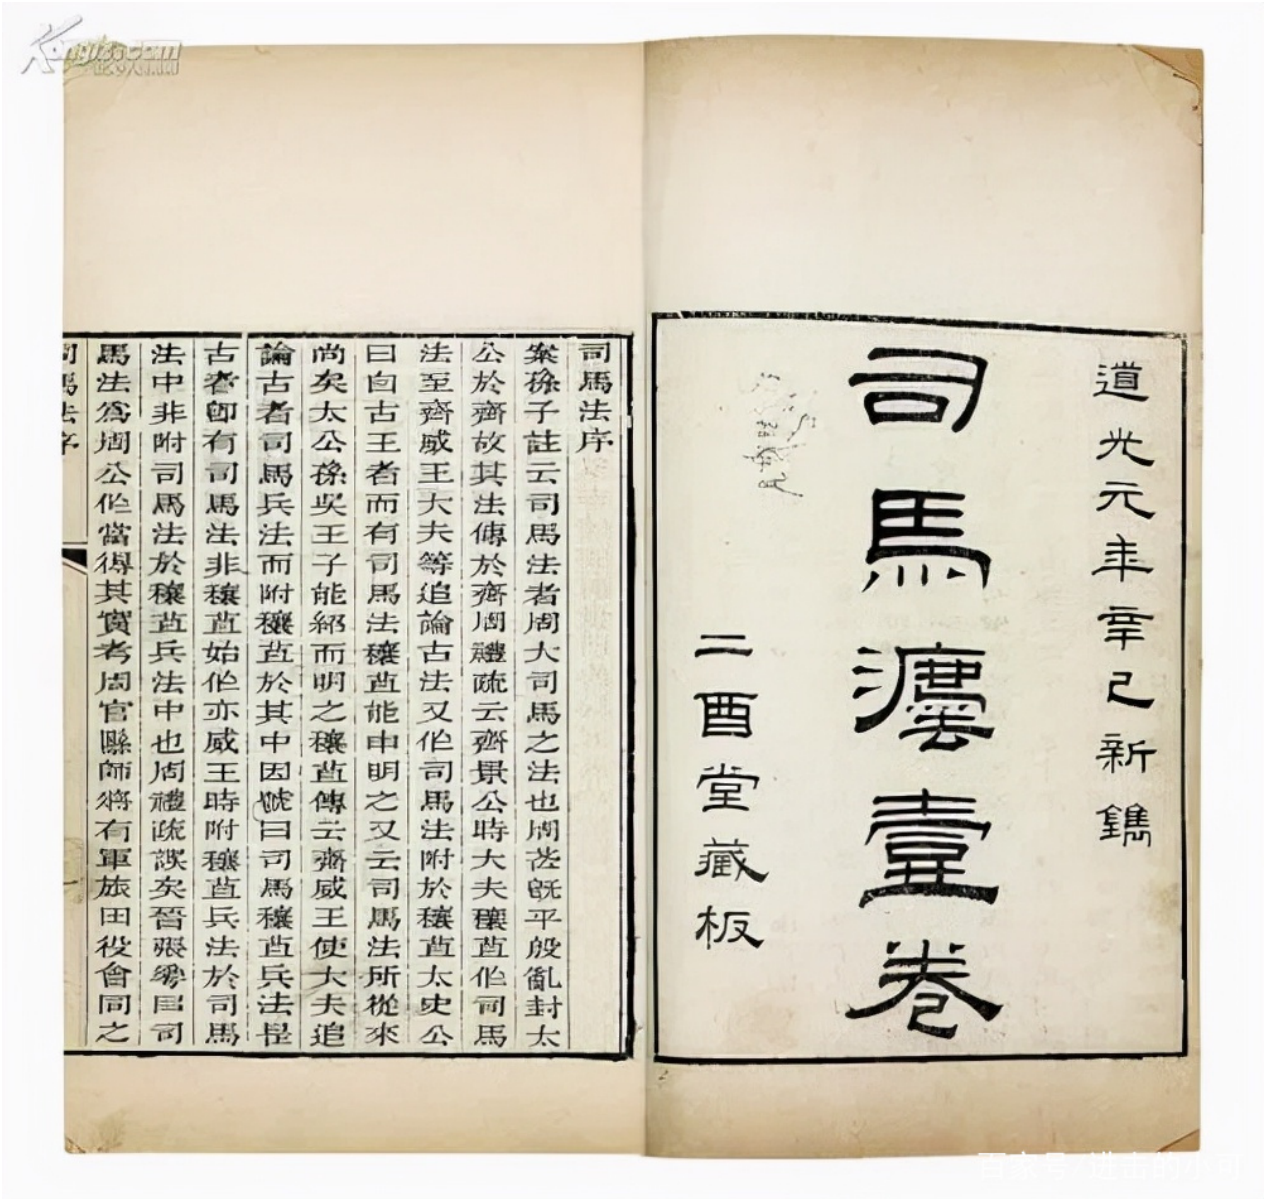 道光元年辛巳新鐫
司馬灋壹卷
二酉堂藏板
司馬法序
案孫子註云司馬法者周大司馬之法也周武既平殷亂封太
公於齊故其法傳於齊周禮疏云齊景公時大夫穰苴作司馬
法至齊威王大夫等追論古法又作司馬法附於穰苴太史公
曰自古王者而有司馬法穰苴能申明之又云司馬法所從來
尚矣太公孫吳王子能紹而明之穰苴傳云齊威王使大夫追
論古者司馬兵法而附穰苴於其中因號曰司馬穰苴兵法是
古者卽有司馬法非穰苴始作亦威王時附穰苴兵法於司馬
法中非附司馬法於穰苴兵法中也周禮疏誤矣晉張華曰司
馬法爲周公作當得其實考周官縣師將有軍旅田役會同之
司馬法序
Kongfz.com
百家号/进击的小可